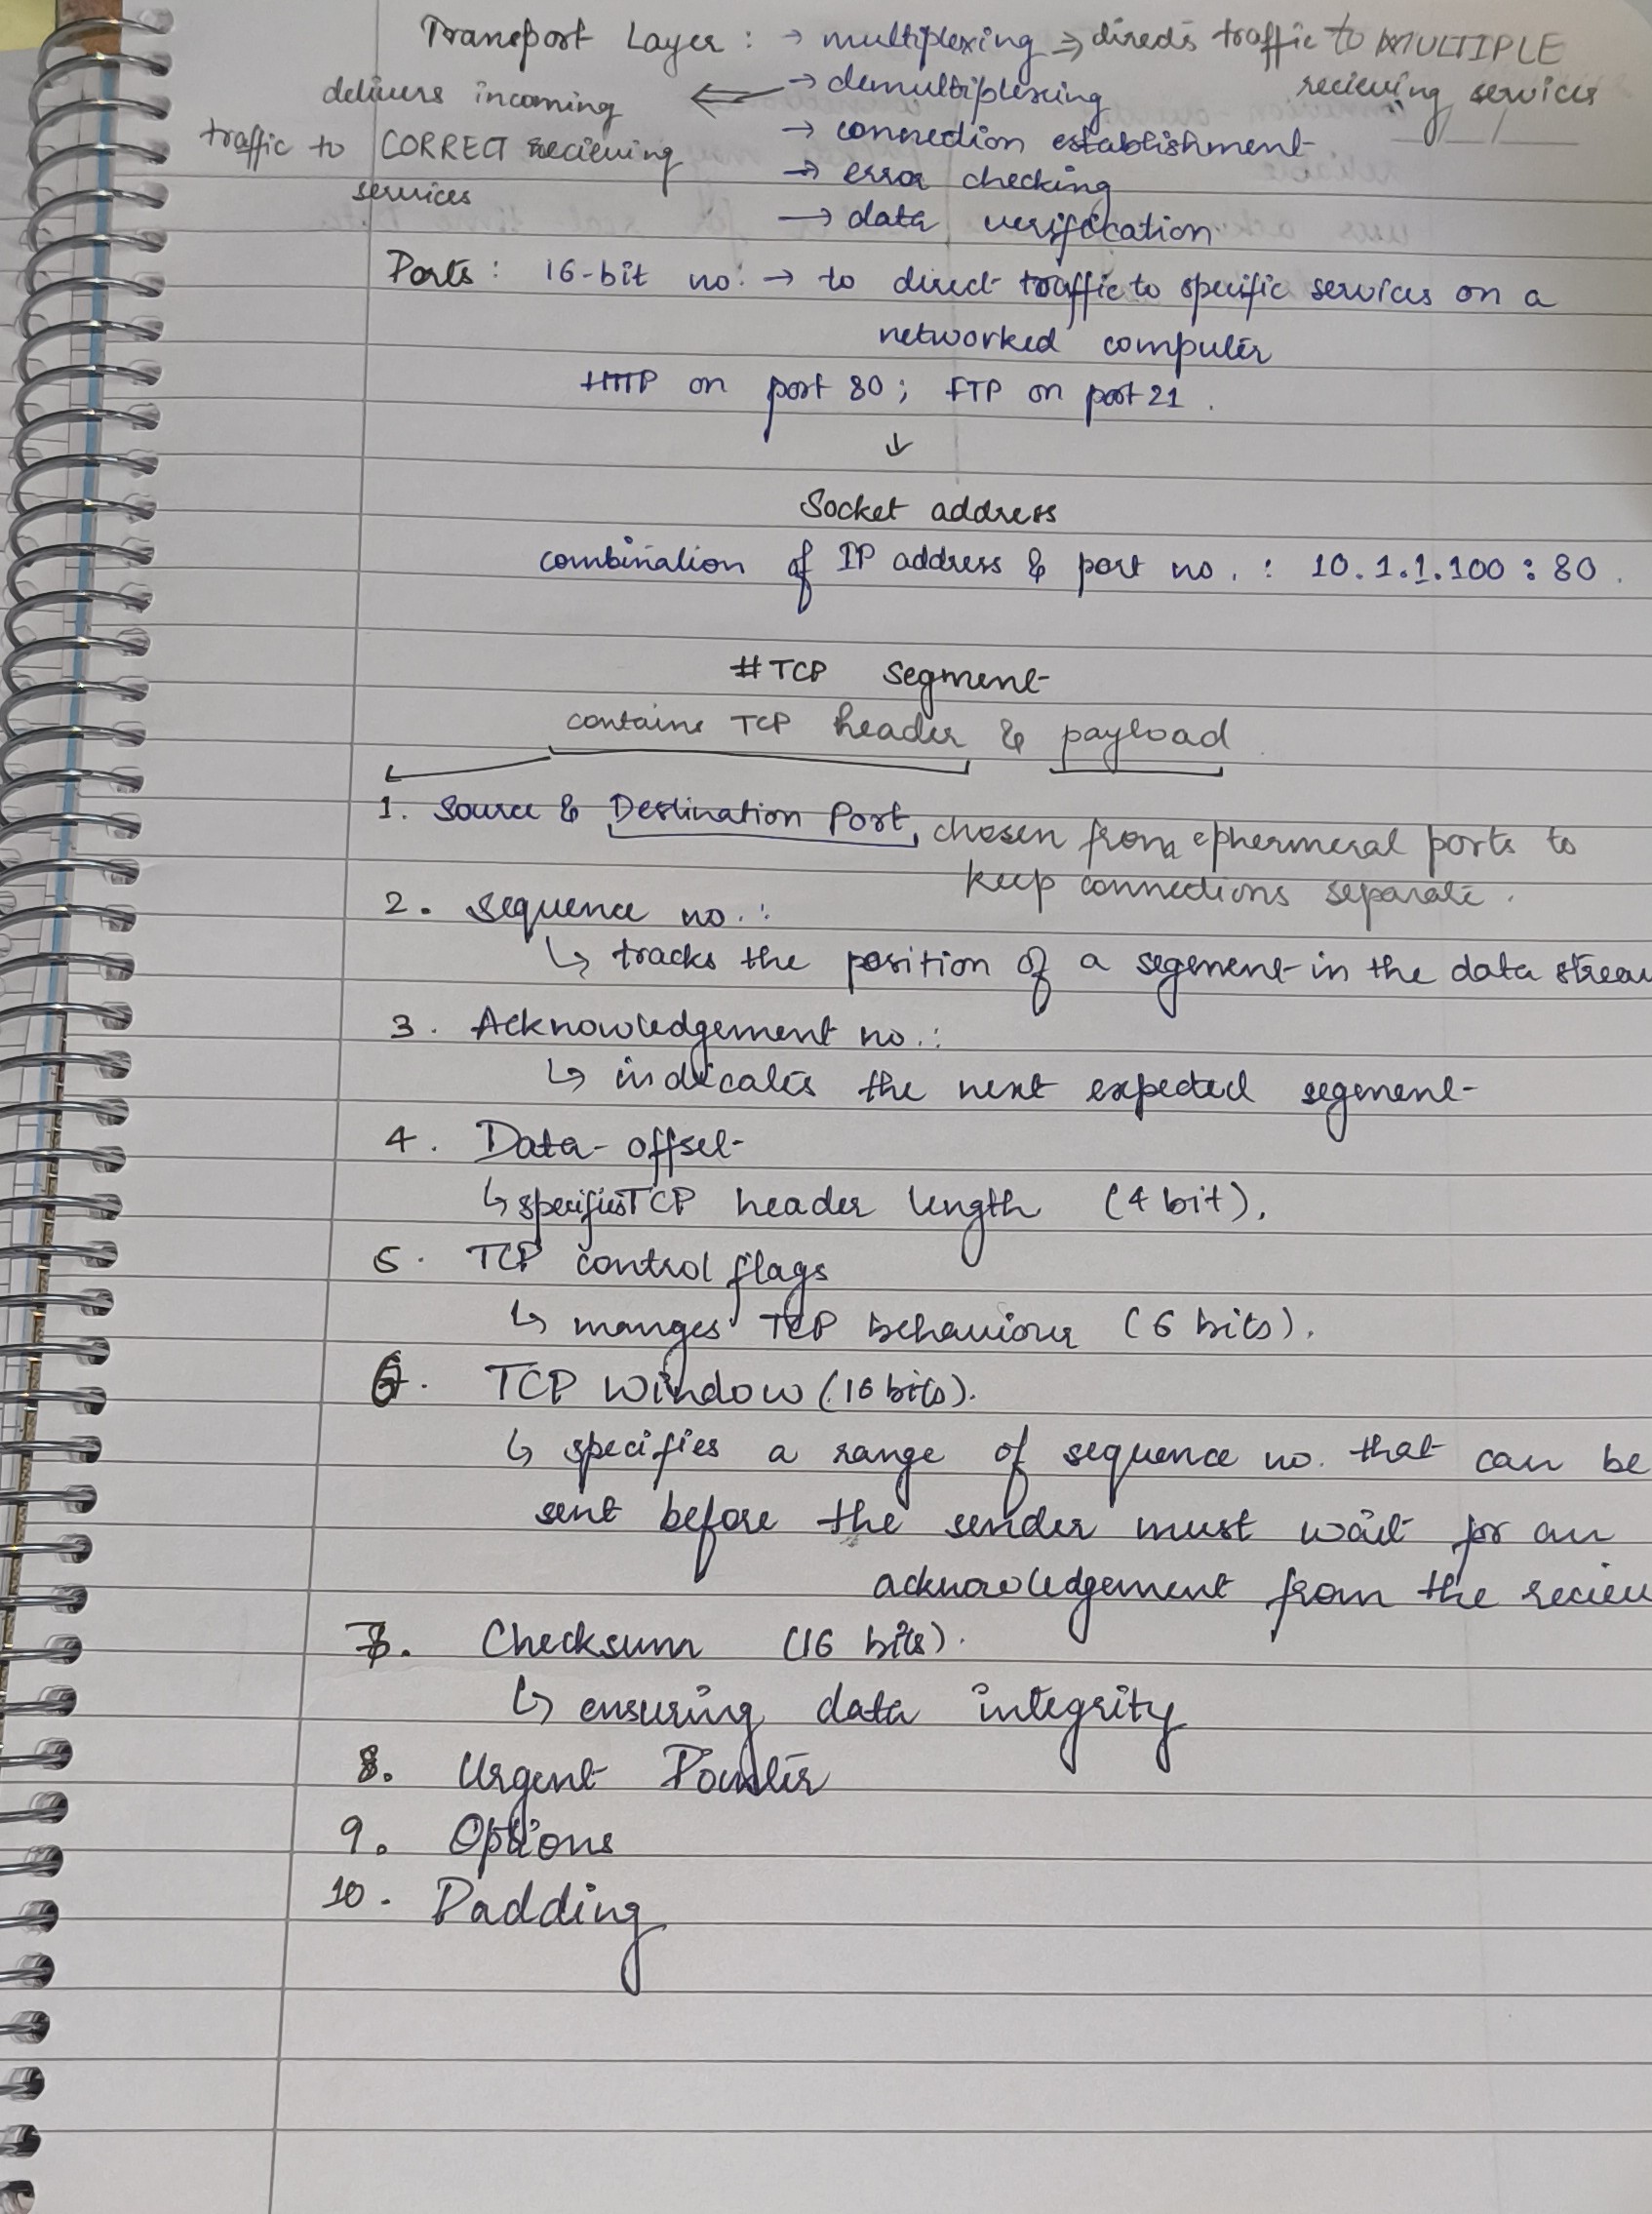 Transport Layer : → multiplexing ⇒ directs traffic to MULTIPLE
recieving services
→ demultiplexing
delivers incoming
traffic to CORRECT recieving
services
→ connection establishment
→ error checking
→ data verification
Ports : 16-bit no. → to direct traffic to specific services on a
networked computer
HTTP on port 80 ; FTP on port 21 .
↓
Socket address
combination of IP address & port no. : 10.1.1.100 : 80 .
# TCP segment
contains TCP header & payload
1. Source & Destination Port, chosen from ephermeral ports to
keep connections separate .
2. sequence no. :
↳ tracks the position of a segement in the data strea
3. Acknowledgement no. :
↳ indicates the next expected segment
4. Data-offset
↳ specifies TCP header length (4 bit).
5. TCP control flags
↳ manges TCP behaviour (6 bits).
6. TCP window (16 bits).
↳ specifies a range of sequence no. that can be
sent before the sender must wait for an
acknowledgement from the reciev
7. Checksum (16 bits).
↳ ensuring data integrity
8. Urgent Pointer
9. Options
10. Padding